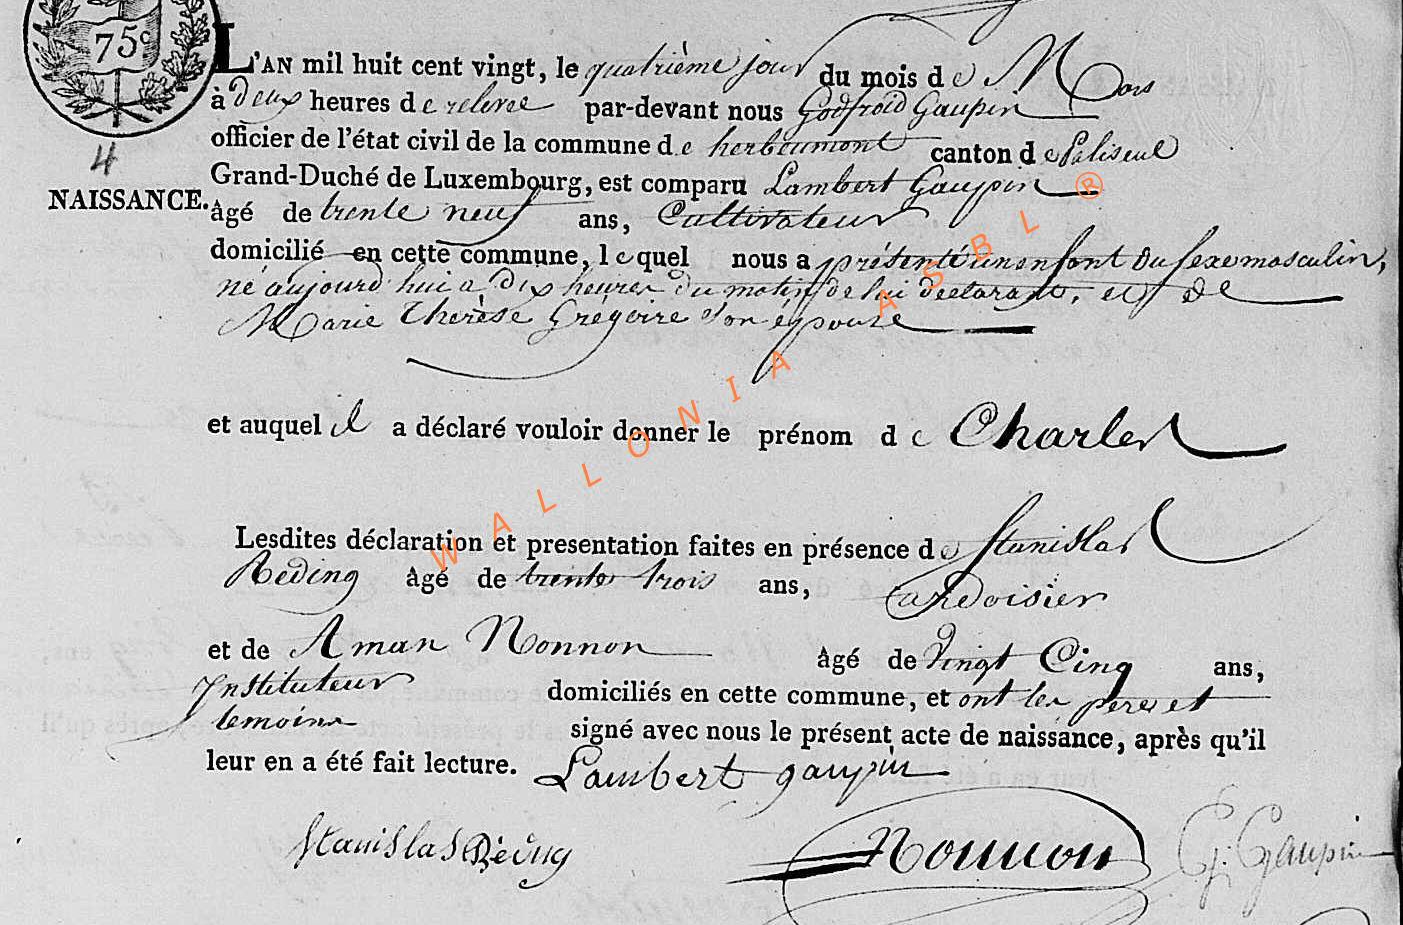 75c
L'AN mil huit cent vingt, le quatrième jour du mois de Mars
à deux heures de relevée par-devant nous Godfroid Gaupin
officier de l'état civil de la commune de herbeumont canton de Paliseul
4
Grand-Duché de Luxembourg, est comparu Lambert Gaupin
NAISSANCE.
âgé de trente neuf ans, Cultivateur
domicilié en cette commune, lequel nous a présenté un enfant du sexe masculin,
né aujourd'hui a dix heures du matin de lui déclarant, et de
Marie Therèse Grégoire son épouse
et auquel il a déclaré vouloir donner le prénom de Charles
Lesdites déclaration et presentation faites en présence de Stanislas
Reding âgé de trente trois ans, ardoisier
et de Aman Nonnon âgé de vingt Cinq ans,
Instituteur domiciliés en cette commune, et ont les pere et
temoins signé avec nous le présent acte de naissance, après qu'il
leur en a été fait lecture. Lambert gaupin
Stanislas Réding Nonnon G. Gaupin
WALLONIA ASBL ®